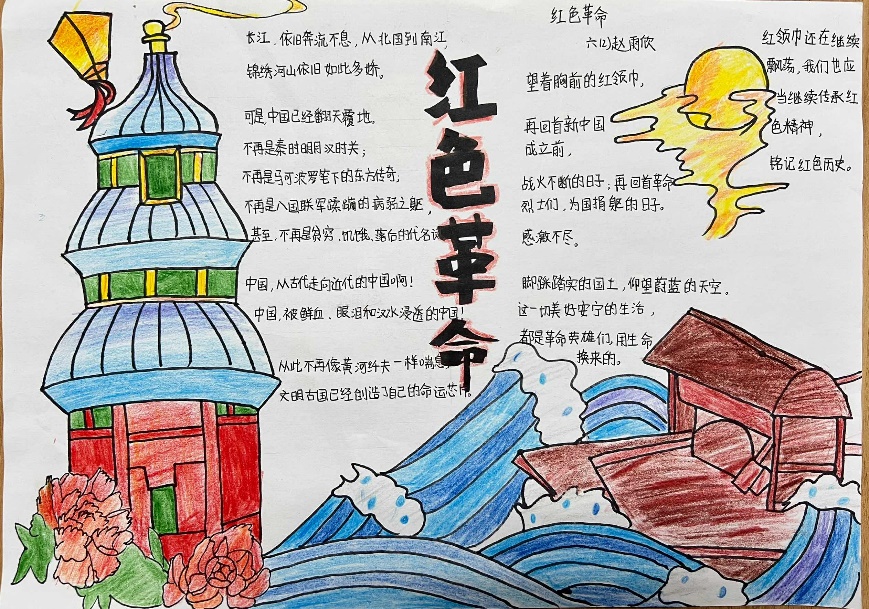 长江,依旧奔流不息,从北国到南江,
锦绣河山依旧如此多娇。
可是中国已经翻天覆地。
不再是秦时明月汉时关;
不再是马可波罗笔下的东方传奇,
不再是八国联军蹂躏的病弱之躯,
甚至,不再是贫穷、饥饿、落后的代名词
中国,从古代走向近代的中国啊!
中国,被鲜血、眼泪和汉水浸透的中国!
从此不再像黄河纤夫一样喘息
文明古国已经创造了自己的命运
红色革命
红色革命
六(2)赵雨欣
望着胸前的红领巾,
再回首新中国
成立前,
战火不断的日子;再回首革命
烈士们,为国捐躯的日子。
感激不尽。
脚踩踏实的国土,仰望蔚蓝的天空。
这一切美好安宁的生活,
都是革命英雄们,用生命
换来的。
红领巾还在继续
飘荡,我们也应
当继续传承红
色精神,
铭记红色历史。